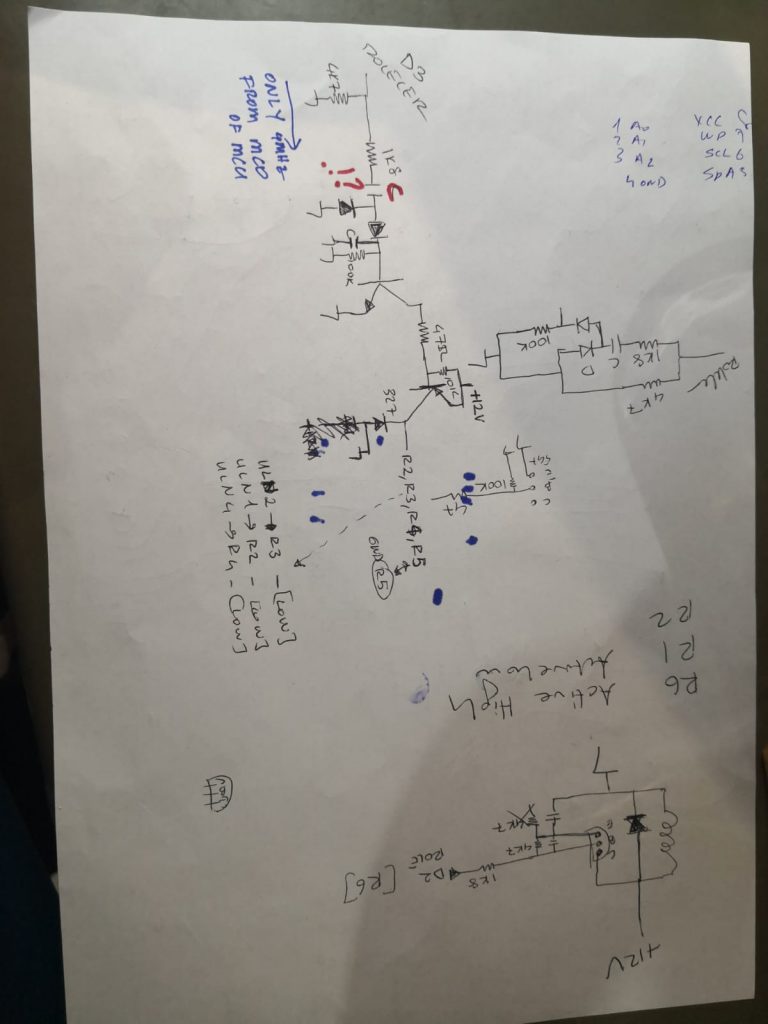 D3
ROLELER
4K7
1K8
C
?!
C
100K
ONLY 4MHz
FROM MCU
OF MCU
47Ω
10K
+12V
327
R2, R3, R4, R5
GND
R5
ULN2 → R3 - [LOW]
ULN1 → R2 - [LOW]
ULN4 → R4 - [LOW]
1 A0
2 A1
3 A2
4 GND
VCC
WP 7
SCL 6
SDA 5
100K
D
C
1K8
4K7
Role
547
C
B
E
100K
47
R2
R1
R6
Active low
Active High
4K7
4K7
E
B
C
1K8
D2
ROLE
[R6]
+12V